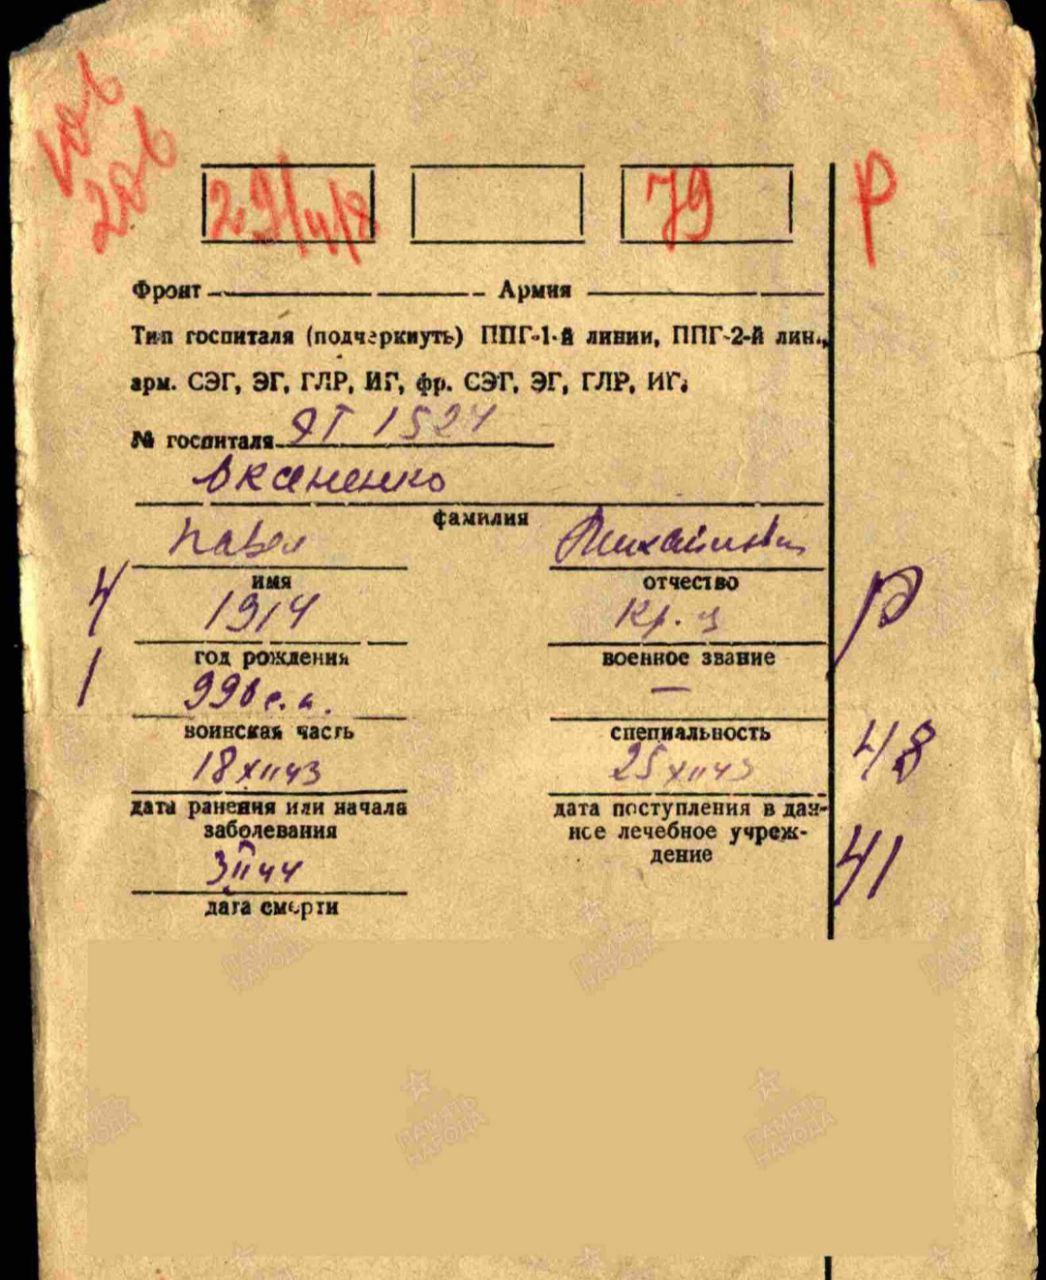 29/4/8 79 Р
Фронт Армия
Тип госпиталя (подчеркнуть) ППГ-1-й линии, ППГ-2-й лин.,
арм. СЭГ, ЭГ, ГЛР, ИГ, фр. СЭГ, ЭГ, ГЛР, ИГ.
№ госпиталя ЭГ 1524
Оксененко
фамилия
Павел Михайлович
имя отчество
4 1914 Кр-ц Р
год рождения военное звание
1 990 с.п. —
воинская часть специальность
18 XII 43 25 XII 43 48
дата ранения или начала дата поступления в дан-
заболевания ное лечебное учреж-
дение
3 II 44 41
дата смерти
ПАМЯТЬ
НАРОДА